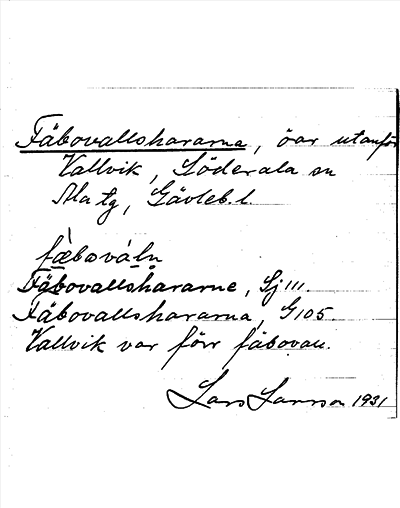 Fäbovallshararna, öar utanför
Vallvik, Söderala sn
Ala tg, Gävleb. l.
fæbovàln
Fäbovallshararne, Sj 111.
Fäbovallshararna, G 105.
Vallvik var förr fäbovall.
Lars Larsson 1931